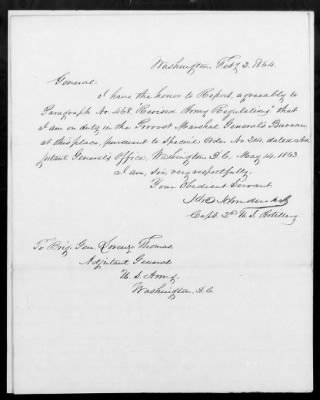 Washington, Feby 2. 1864.
General.
I have the honor to Report, agreeably to
Paragraph No 468 "Revised Army Regulations" that
I am on duty in the Provost Marshal General's Bureau
at this place, pursuant to Special Order No 214, dated Ad-
jutant General's Office, Washington D.C. May 14. 1863.
I am, Sir, very respectfully,
Your Obedient Servant
Capt 2d U.S. Artillery
To Brig. Gen. Lorenzo Thomas
Adjutant General
U. S. Army,
Washington, D.C.